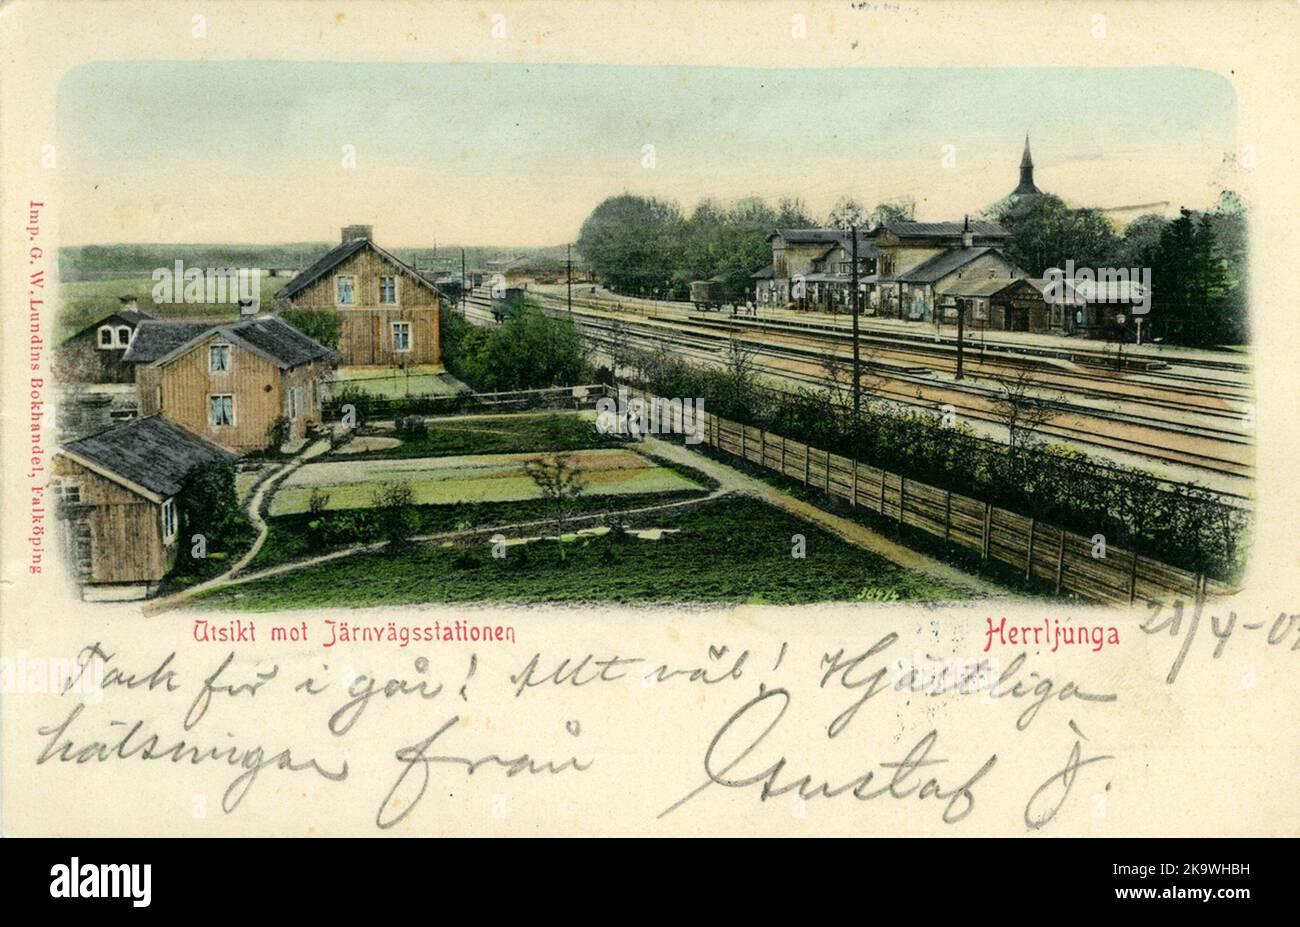 Imp. G. W. Lundins Bokhandel, Falköping
38474
Utsikt mot Järnvägsstationen
Herrljunga
21/4-07
Tack för i går! Allt väl! Hjärtliga
hälsningar från Gustaf J.
alamy
Image ID: 2K9WHBH
www.alamy.com